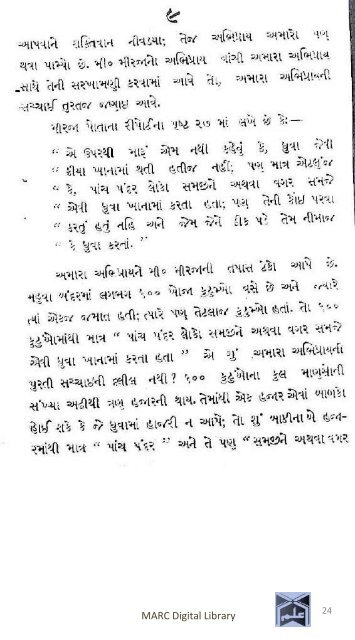 ૯
આપવાને શક્તિવાન નીવડયા; તેજ અભિપ્રાય અમારા પણ
થવા પામ્યો છે. મી૦ મીરજાનો અભિપ્રાય વાંચી અમારા અભિપ્રાય
સાથે તેની સરખામણી કરવામાં આવે તો, અમારા અભિપ્રાયની
સચ્ચાઈ તુરતજ જણાઇ આવે.
મીરજા પોતાના રીપોર્ટના પૃષ્ટ ૨૭ માં લખે છે કેઃ—
“ એ ઉપરથી મારૂં એમ નથી કહેવું કે, ધુવા જેવી
“ ક્રીયા ખાનામાં થતી હતીજ નહીં; પણ માત્ર એટલુંજ
“ કે, પાંચ પંદર લોકો સમજીને અથવા વગર સમજે
“ એવી ધુવા ખાનામાં કરતા હતા; પણ તેની કોઇ પરવા
“ કરતું હતું નહિ અને જેમ જેને ઠીક પડે તેમ નીમાજ
“ કે ધુવા કરતાં. ”
અમારા અભિપ્રાયને મી૦ મીરજાની તપાસ ટેકો આપે છે.
મહુવા બંદરમાં લગભગ ૬૦૦ ખોજા કુટુમ્બો વસે છે અને જ્યારે
ત્યાં એકજ જમાત હતી; ત્યારે પણ તેટલાજ કુટુમ્બો હતાં. તો ૬૦૦
કુટુમ્બોમાંથી માત્ર “ પાંચ પંદર લોકો સમજીને અથવા વગર સમજે
એવી ધુવા ખાનામાં કરતા હતા ” એ શું અમારા અભિપ્રાયની
પુરતી સચ્ચાઇની દલીલ નથી ? ૬૦૦ કુટુમ્બોના કુલ માણસોની
સંખ્યા અઢીથી ત્રણ હજારની થાય. તેમાંથી એક હજાર એવાં બાળકો
હોઈ શકે કે જે ધુવામાં હાજરી ન આપે; તો શું બાકીના બે હજા-
રમાંથી માત્ર “ પાંચ પંદર ” અને તે પણ “ સમજીને અથવા વગર
MARC Digital Library
24